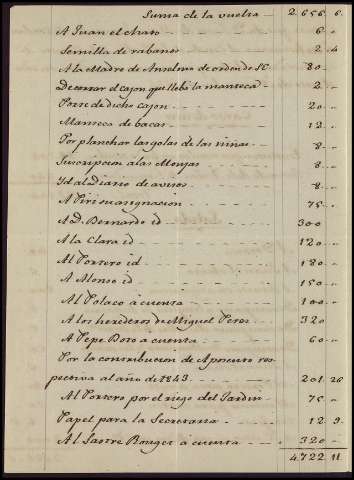 Suma de la vuelta 2.656 6.
A Juan el charo 6
Semilla de rabanos 2. 4
A la Madre de Anselmo de orden de SE 80
De cerrar el cajon que llebó la manteca 2
Porte de dicho cajon 20
Manteca de bacas 12
Por planchar las golas de las niñas 8
Suscripcion a las Monjas 8
Yd al Diario de avisos 8
A Piri su asignacion 75
A D. Bernardo id 300
A la Clara id 120
Al Portero id 180
A Alonso id 150
Al Polaco á cuenta 100
A los herederos de Miguel Perez 320
A Pepe Boto a cuenta 60
Por la contribucion de Aposento res-
pectiva al año de 1843 201. 26
Al Portero por el riego del Jardin 75
Papel para la Secretaria 12 9
Al Sastre Bouget á cuenta 320
4.722 11